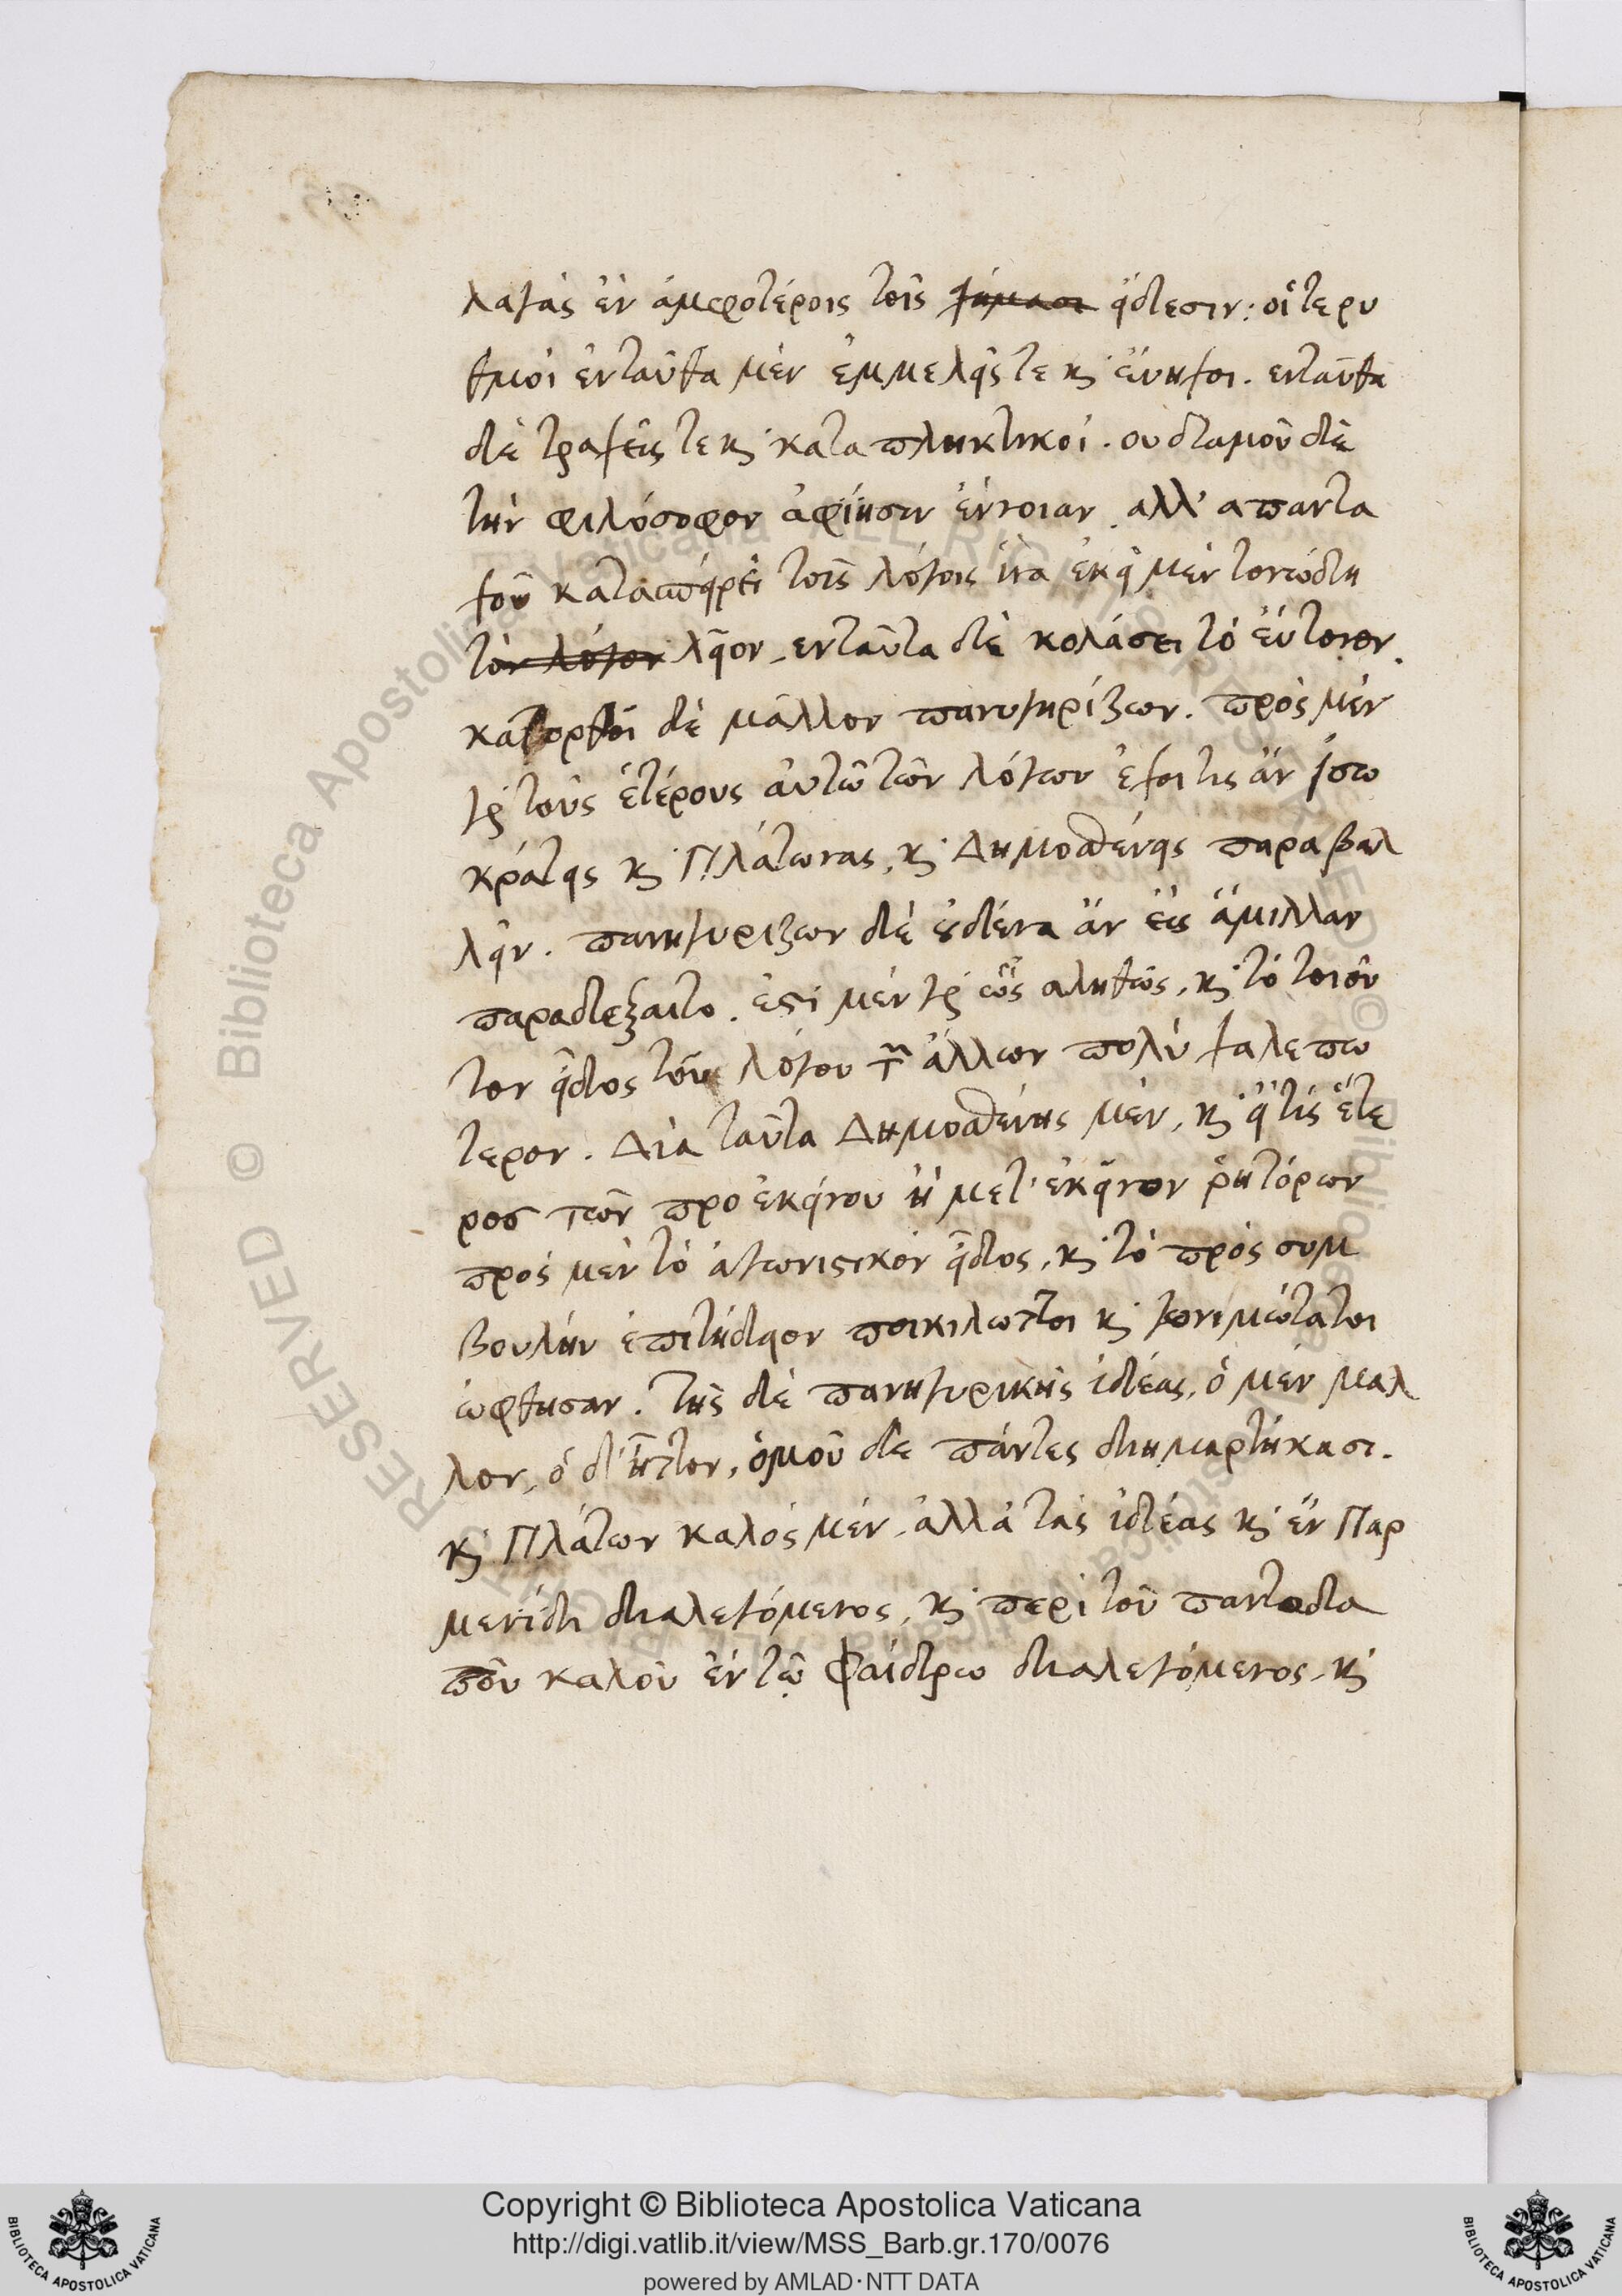 λαγὰς ἐν ἀμφοτέροις τοῖς σχήμασι εἴδεσιν: οἵ τε ρυ
θμοὶ ἐνταῦθα μὲν ἐμμελεῖς τε κ̀ εὔηχοι. ενταῦθα
δὲ τραχεῖς τε κ̀ καταπληκτικοί. ουδαμοῦ δὲ
τὴν φιλόσοφον ἀφίησιν ἔννοιαν, αλλ' απαντα
χοῦ κατασπείρει τοῖς λόγοις ἵνα ἐκεῖ μὲν τονώδη
τὸν λόγον λεῖον, ενταῦτα δὲ κολάσει τὸ εὔτονον.
κατορθοῖ δὲ μᾶλλον πανυγηρίζων. πρὸς μὲν
γὰρ τοὺς ἑτέρους αὐτῶ τῶν λόγων ἔχοι τις ἂν ἰσο
κράτεις κ̀ Πλάτωνας, κ̀ Δημοσθένεις παραβαλ
λεῖν. πανηγυριζων δὲ οὐδένα ἂν εἰς ἅμιλλαν
παραδεξαιτο. ἐστὶ μὲν γὰρ ὡς αληθῶς, κ̀ τὸ τοιοῦ
τον εἶδος τοῦ λόγου τῶν ἄλλων πολὺ χαλεπώ
τερον. Δία ταῦτα Δημοσθένης μὲν, κ̀ εἴ τις ἕτε
ρος τῶν προ ἐκείνου ἢ μετ' ἐκεῖνον ῥητόρων
πρὸς μὲν τὸ ἀγωνιστικὸν εἶδος, κ̀ τὸ πρὸς συμ
βουλὴν ἐπιτήδειον ποικιλώττοι κ̀ γονιμώτατοι
ὠφθησαν. τῆς δὲ πανηγυρικῆς ἰδέας, ὁ μὲν μαλ
λον, ὁ δ' ἧττον, ὁμοῦ δε πάντες διημαρτήκασι.
κ̀ Πλάτων καλὸς μὲν, ἀλλὰ τὰς ἰδέας κ̀ ἐν Παρ
μενίδη διαλεγόμενος, κ̀ περὶ τοῦ παντοδα
ποῦ καλοῦ ἐν τῷ Φαίδρω διαλεγόμενος, κ̀
Copyright © Biblioteca Apostolica Vaticana
http://digi.vatlib.it/view/MSS_Barb.gr.170/0076
powered by AMLAD·NTT DATA